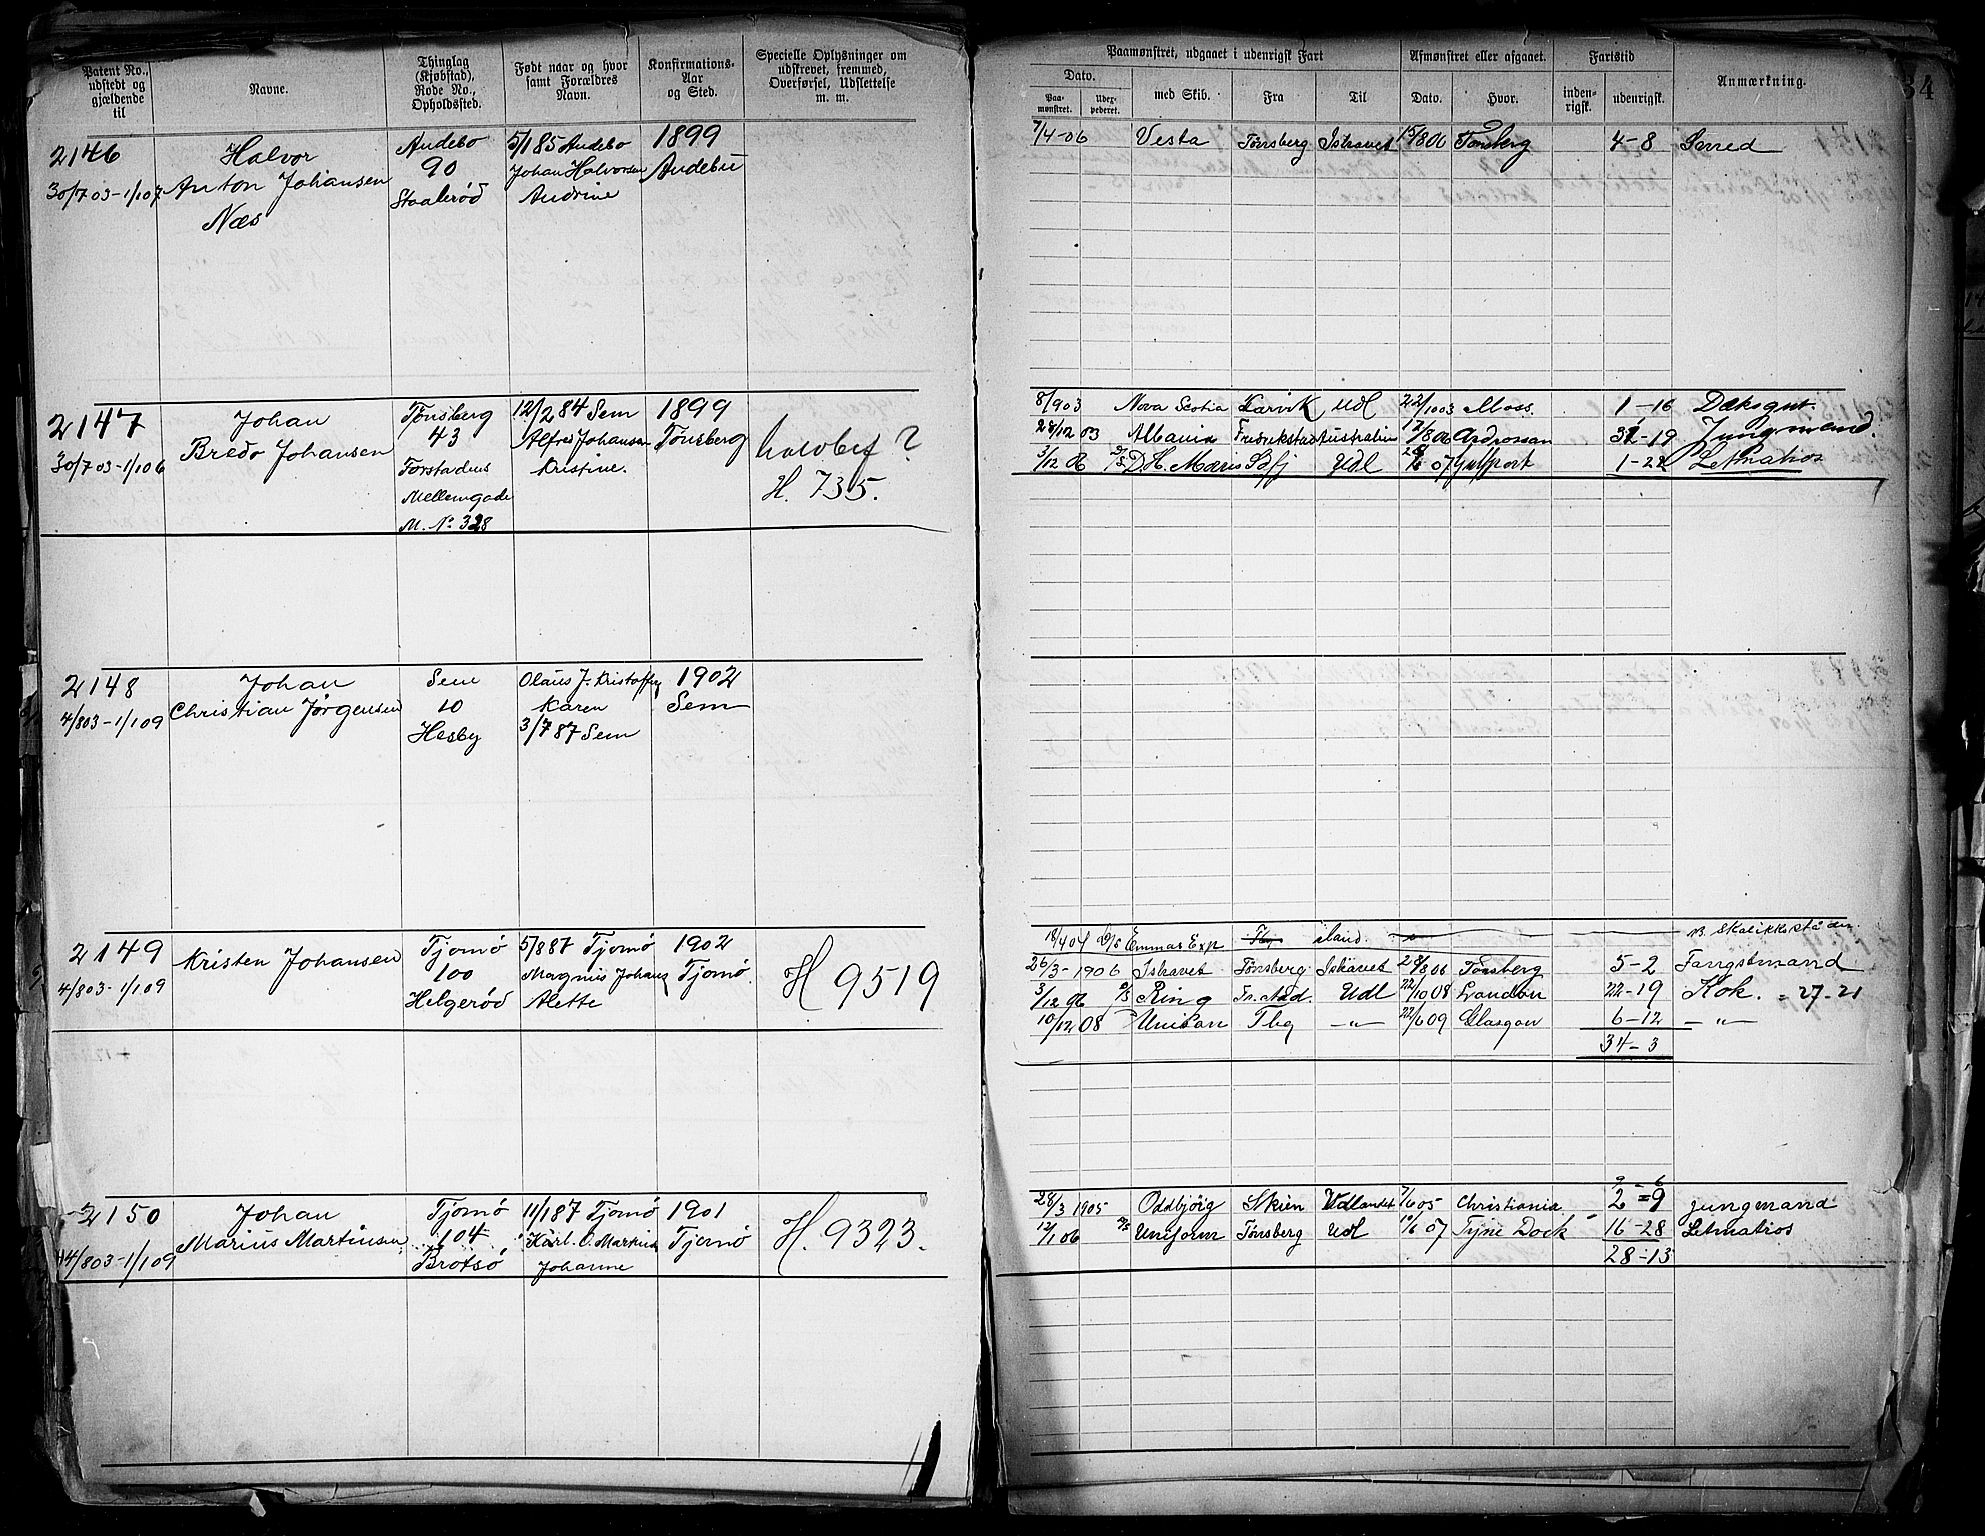 Patent No.,
udstedt og
gjældende
til
Navne.
Thinglag
(Kjøbstad),
Rode No.,
Opholdssted.
Født naar og hvor
samt Forældres
Navn.
Konfirmations-
Aar
og Sted.
Specielle Oplysninger om
udskrevet, fremmed,
Overførsel, Udslettelse
m. m.
Paamønstret, udgaaet i udenrigsk Fart
Dato.
Paa-
mønstret.
Udex-
pederet.
med Skib.
Fra
Til
Afmønstret eller afgaaet.
Dato.
Hvor.
Fartstid
inden-
rigsk.
udenrigsk.
Anmærkning.
34
2146
30/7 03-1/1 07
Halvor
Anton Johansen
Næs
Andebo
90
Staalerød
5/1 85 Andebo
Johan Halvorsen
Andrine
1899
Andebu
7/4-06 Vesta Tønsberg Ishavet 15/8 06 Tønsberg 4-8 Smed
2147
30/7 03-1/1 06
Johan
Bredo Johansen
Tønsberg
43
Forstadens
Mellemgade
M. No 328
12/2 84 Sem
Alfred Johansen
Kristine.
1899
Tønsberg
halvbef ?
H. 735.
8/9 03 Nova Scotia Larvik Udl 22/10 03 Moss. 1-16 Dæksgut.
28/12 03 Albania Fredrikstad Australien 12/8 06 Ardrossan 31-19 Jungmand.
3/12 06 D. H. Moris Udl 07 Gulfport 1-22 Letmatros
2148
4/8 03-1/1 09
Johan
Christian Jørgensen
Sem
10
Hesby
Olaus J. Kristoffers
Karen
3/7 87 Sem
1902
Sem
2149
4/8 03-1/1 09
Kristen Johansen
Tjømø
100
Helgerød
5/8 87 Tjømø
Magnus Johans
Alette
1902
Tjømø.
H 9519
18/4 04 Emmas Exp Tbg island.
26/3-1906 Ishavet Tønsberg Ishavet 28/8 06 Tønsberg 5-2 Fangstmand
3/12 06 Ring Fr.stad. Udl 22/10 08 London 22-19 Kok. = 27-21
10/12 08 Unison Tbg -"- 22/6 09 Glasgow 6-12 -"-
34-3
2150
4/8 03-1/1 09
Johan
Marius Martinsen
Tjømø
104
Brøtsø
11/1 87 Tjømø
Karl O. Markus
Johanne
1901
Tjømø
H. 9323.
9-6
28/3 1905 Oddbjørg Skien Udlandet 7/6 05 Christiania 2=9 jungmand
12/1 06 Uniform Tønsberg Udl 10/6 07 Tyne Dock 16-28 Letmatros
28-13